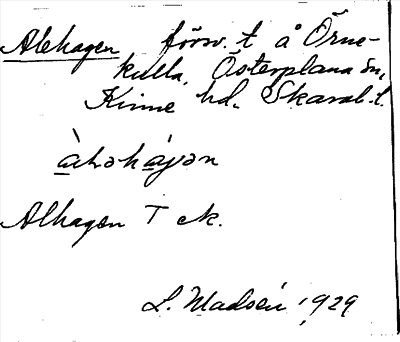 Alehagen försv. t å Örne-
kulla, Österplana sn,
Kinne hd, Skarab. l.
àləhájən
Alhagen T ek.
L. Madsén 1929